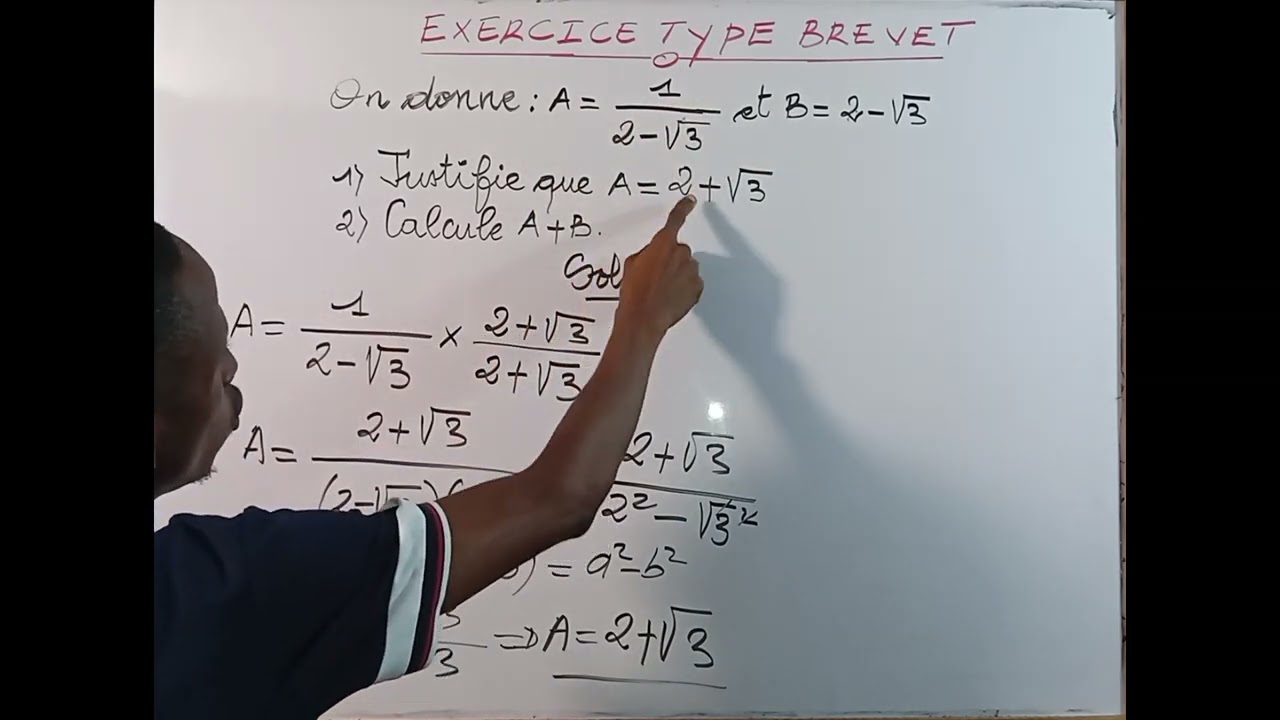 EXERCICE TYPE BREVET
On donne : A = 1/(2-√3) et B = 2-√3
1) Justifie que A = 2+√3
2) Calcule A+B.
Sol
A = 1/(2-√3) × (2+√3)/(2+√3)
A = (2+√3)/(2-√ (2+√3)/(2²-√3²)
) = a²-b²
3 ⇒ A = 2+√3